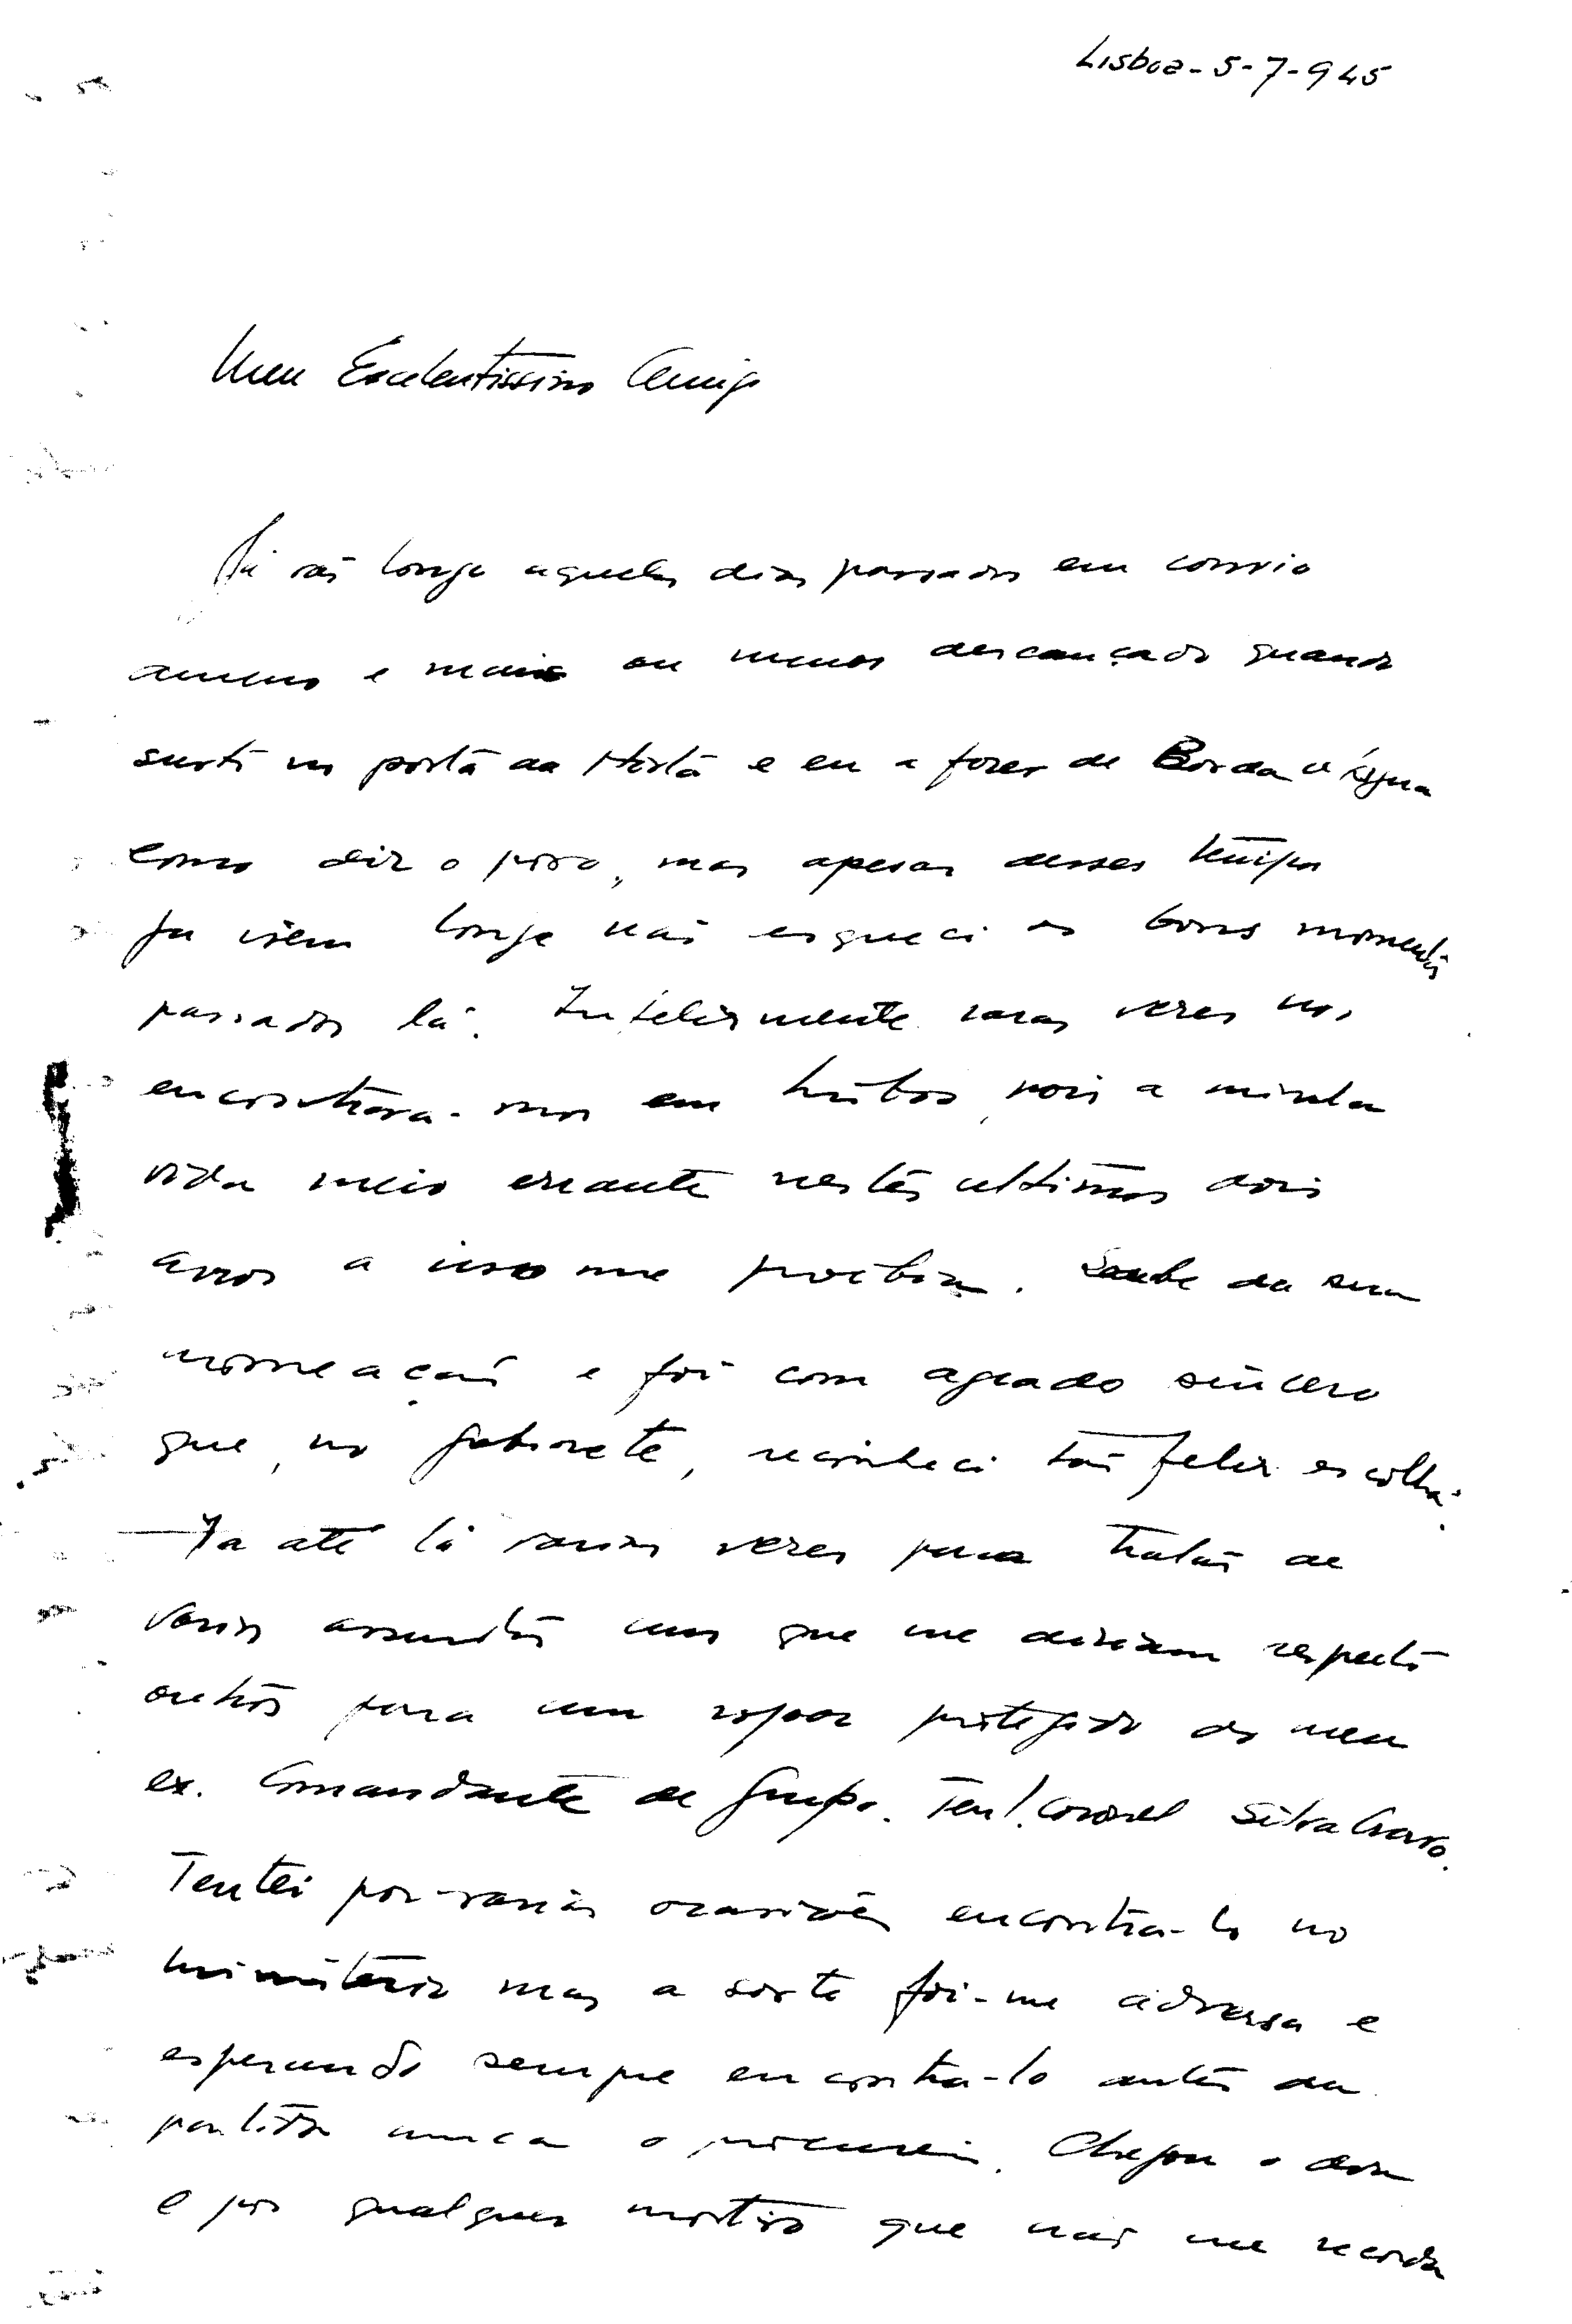 Lisboa - 5-7-945
Meu Excelentissimo Amigo
Já vão longe aqueles dias passados em convivio
ameno e mais ou menos descançado quando
surto no porto da Horta e eu a fazer de Borda d'Água
como diz o povo, mas apesar desses tempos
ja irem longe não esqueci os bons momentos
passados lá. Infelizmente raras vezes nos
encontrara-mos em Lisboa, pois a minha
vida meio errante nestes ultimos dois
anos a isso me proibia. Soube da sua
nomeação e foi com agrado sincero
que, no gabinete, reconheci tão feliz escolha.
Ia até lá varias vezes para tratar de
varios assuntos uns que me diziam respeito
outros para um rapaz protegido do meu
ex. Comandante de Grupo. Ten. Coronel Silva
Tentei por varias ocasiões encontra-lo no
ministério mas a sorte foi-me adversa e
esperando sempre encontra-lo antes da
partida nunca o procurei. Chegou o dia
e por qualquer motivo que não me recorda